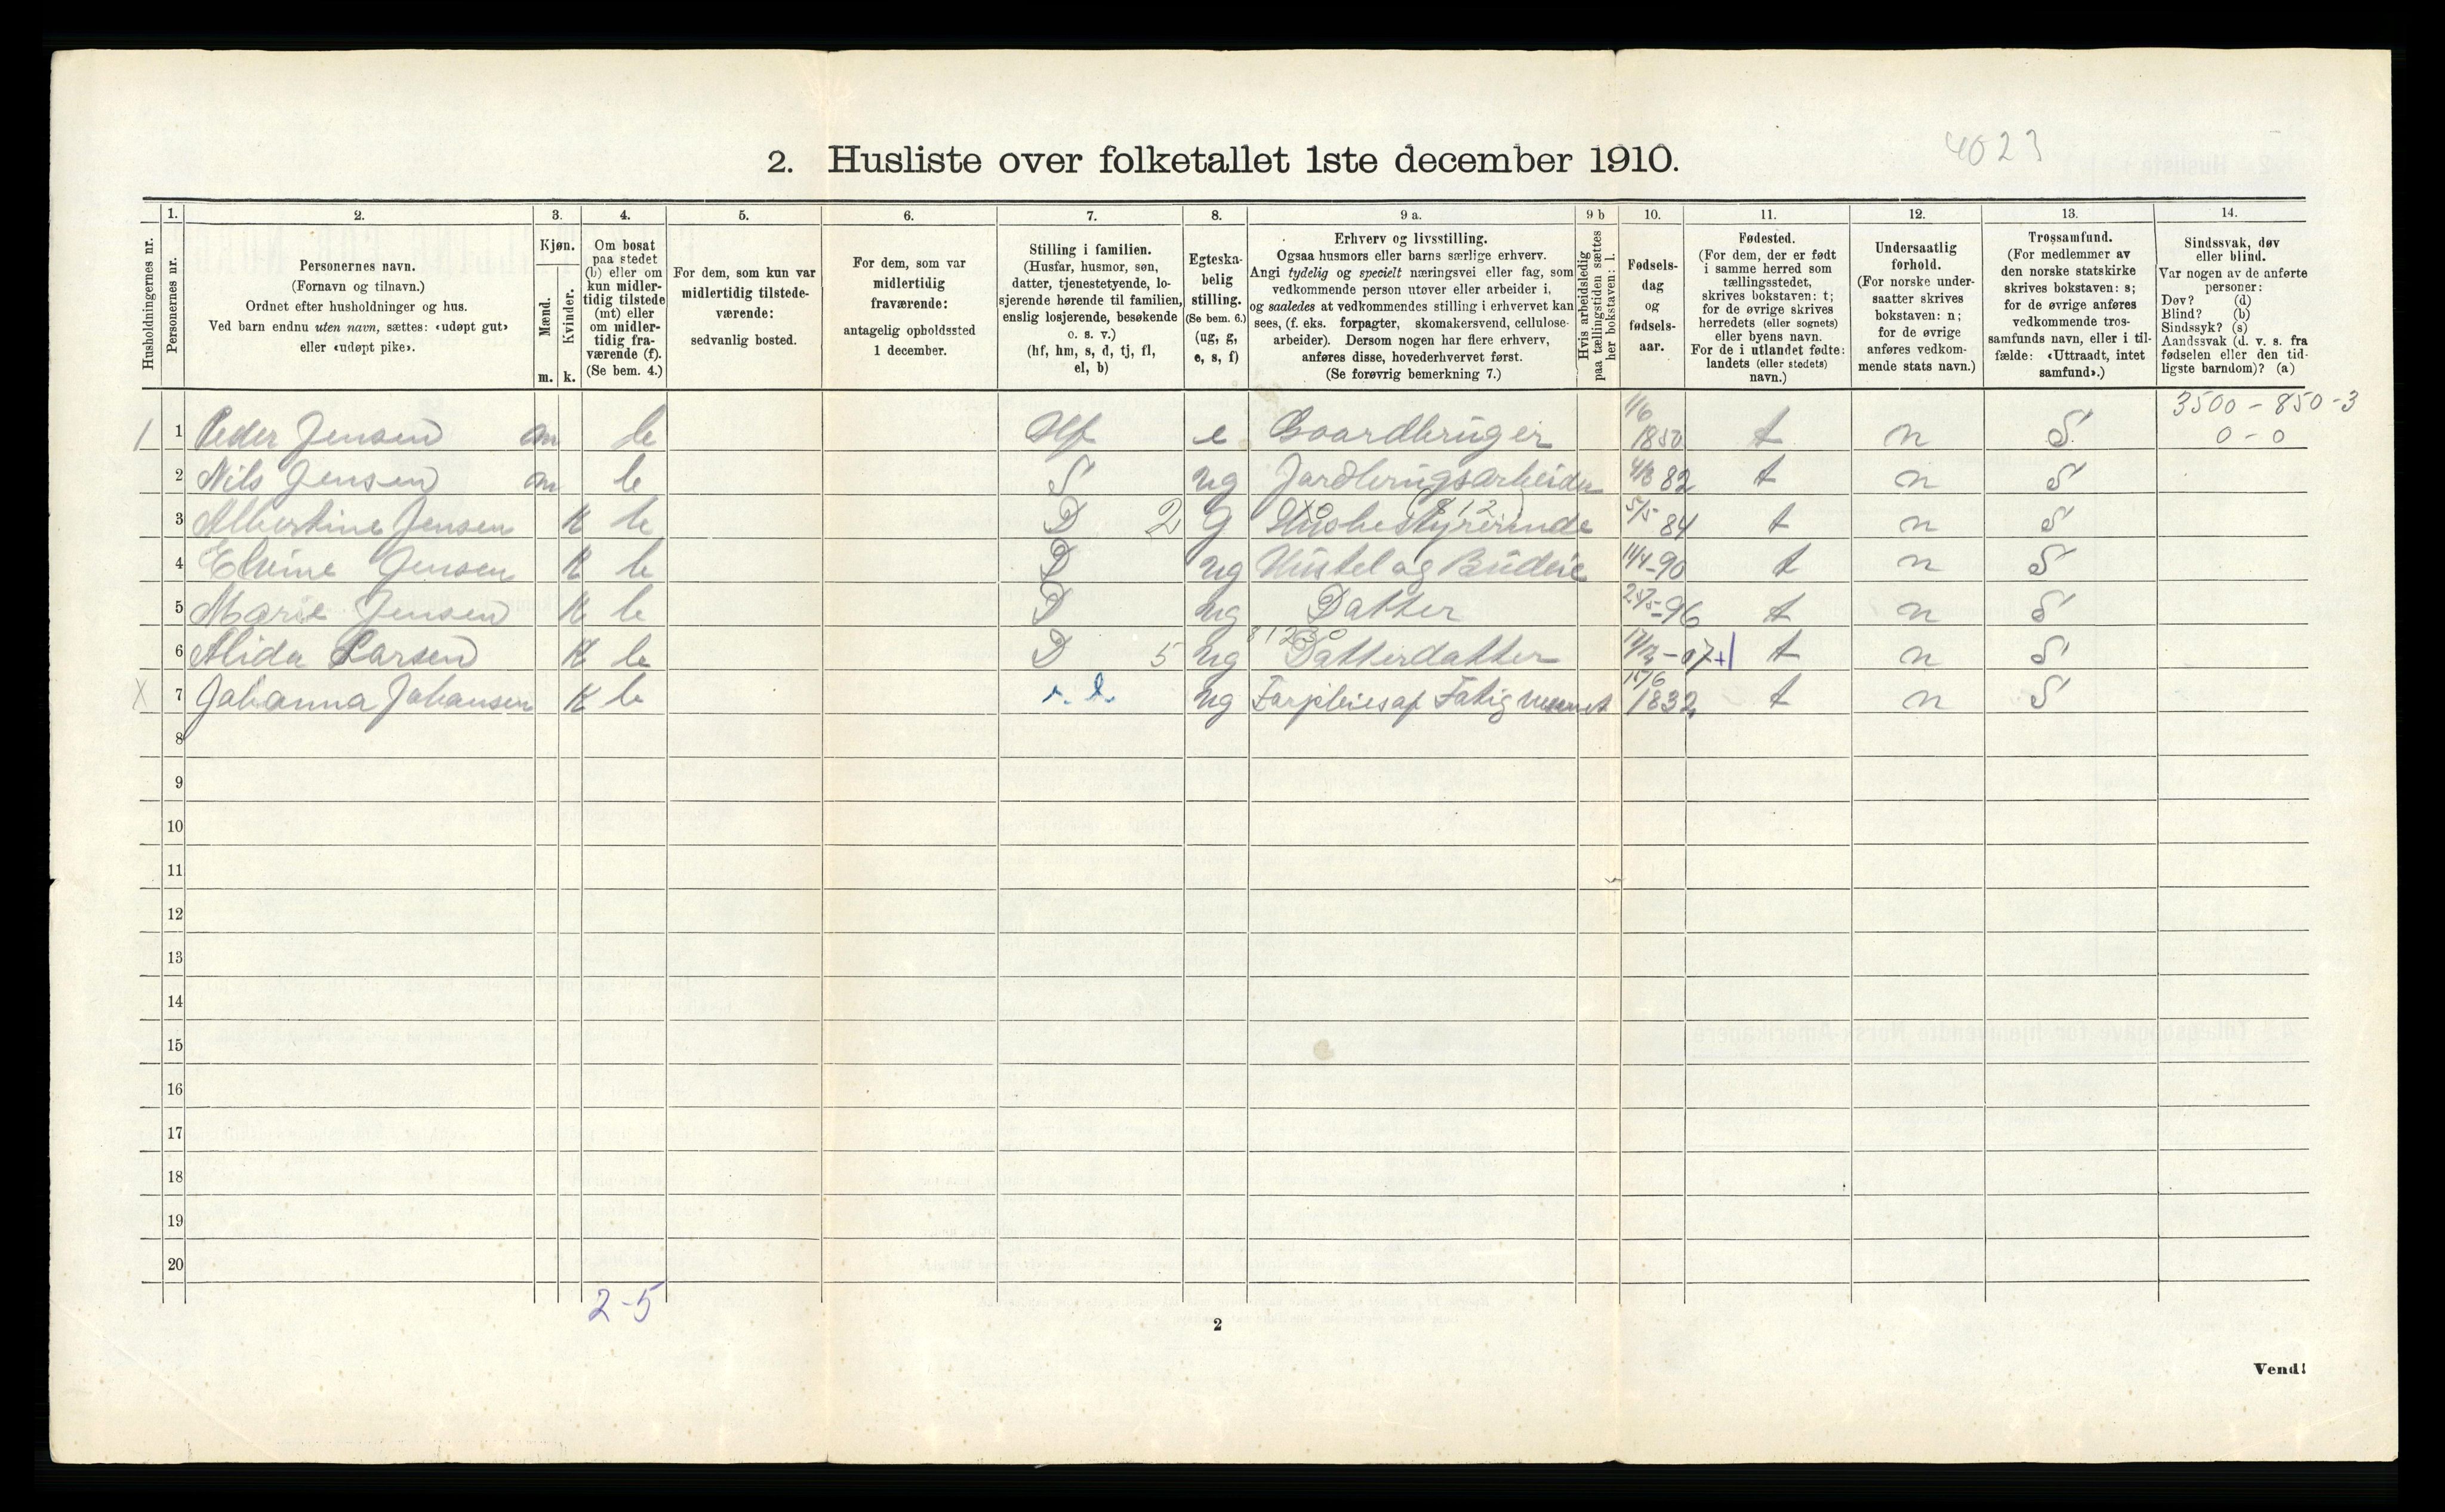 4023
2. Husliste over folketallet 1ste december 1910.
Husholdningernes nr.
1. Personernes nr.
2. Personernes navn.
(Fornavn og tilnavn.)
Ordnet efter husholdninger og hus.
Ved barn endnu uten navn, sættes: «udøpt gut»
eller «udøpt pike».
3. Kjøn.
Mænd. m.
Kvinder. k.
4. Om bosat
paa stedet
(b) eller om
kun midler-
tidig tilstede
(mt) eller
om midler-
tidig fra-
værende (f).
(Se bem. 4.)
5. For dem, som kun var
midlertidig tilstede-
værende:
sedvanlig bosted.
6. For dem, som var
midlertidig
fraværende:
antagelig opholdssted
1 december.
7. Stilling i familien.
(Husfar, husmor, søn,
datter, tjenestetyende, lo-
sjerende hørende til familien,
enslig losjerende, besøkende
o. s. v.)
(hf, hm, s, d, tj, fl,
el, b)
8. Egteska-
belig
stilling.
(Se bem. 6.)
(ug, g,
e, s, f)
9 a. Erhverv og livsstilling.
Ogsaa husmors eller barns særlige erhverv.
Angi tydelig og specielt næringsvei eller fag, som
vedkommende person utøver eller arbeider i,
og saaledes at vedkommendes stilling i erhvervet kan
sees, (f. eks. forpagter, skomakersvend, cellulose-
arbeider). Dersom nogen har flere erhverv,
anføres disse, hovederhvervet først.
(Se forøvrig bemerkning 7.)
9 b Hvis arbeidsledig
paa tællingstiden sættes
her bokstaven: l.
10. Fødsels-
dag
og
fødsels-
aar.
11. Fødested.
(For dem, der er født
i samme herred som
tællingsstedet,
skrives bokstaven: t;
for de øvrige skrives
herredets (eller sognets)
eller byens navn.
For de i utlandet fødte:
landets (eller stedets)
navn.)
12. Undersaatlig
forhold.
(For norske under-
saatter skrives
bokstaven: n;
for de øvrige
anføres vedkom-
mende stats navn.)
13. Trossamfund.
(For medlemmer av
den norske statskirke
skrives bokstaven: s;
for de øvrige anføres
vedkommende tros-
samfunds navn, eller i til-
fælde: «Uttraadt, intet
samfund».)
14. Sindssvak, døv
eller blind.
Var nogen av de anførte
personer:
Døv? (d)
Blind? (b)
Sindssyk? (s)
Aandssvak (d. v. s. fra
fødselen eller den tid-
ligste barndom)? (a)
1 1 Peder Jensen m b Hf e Gaardbruger 1/6 1850 t n S 3500-850-3
0-0
2 Nils Jensen m b S ug Jordbrugsarbeider 82 t n S
3 Albertine Jensen K b D 2 G Husbestyrerinde 5/5 84 t n S
4 Elvine Jensen K b D ug Hustel og Budeie 14/4-90 t n S
5 Marie Jensen K b D ug Datter 25/5-96 t n S
6 Alida Larsen K b D 5 ug Datterdatter 17/12-07 +1 t n S
X 7 Johanna Johansen K b ug Forpleies af Fatigvæsenet 15/6 1832 t n S
8
9
10
11
12
13
14
15
16
17
18
19
20
2-5
2
Vend!